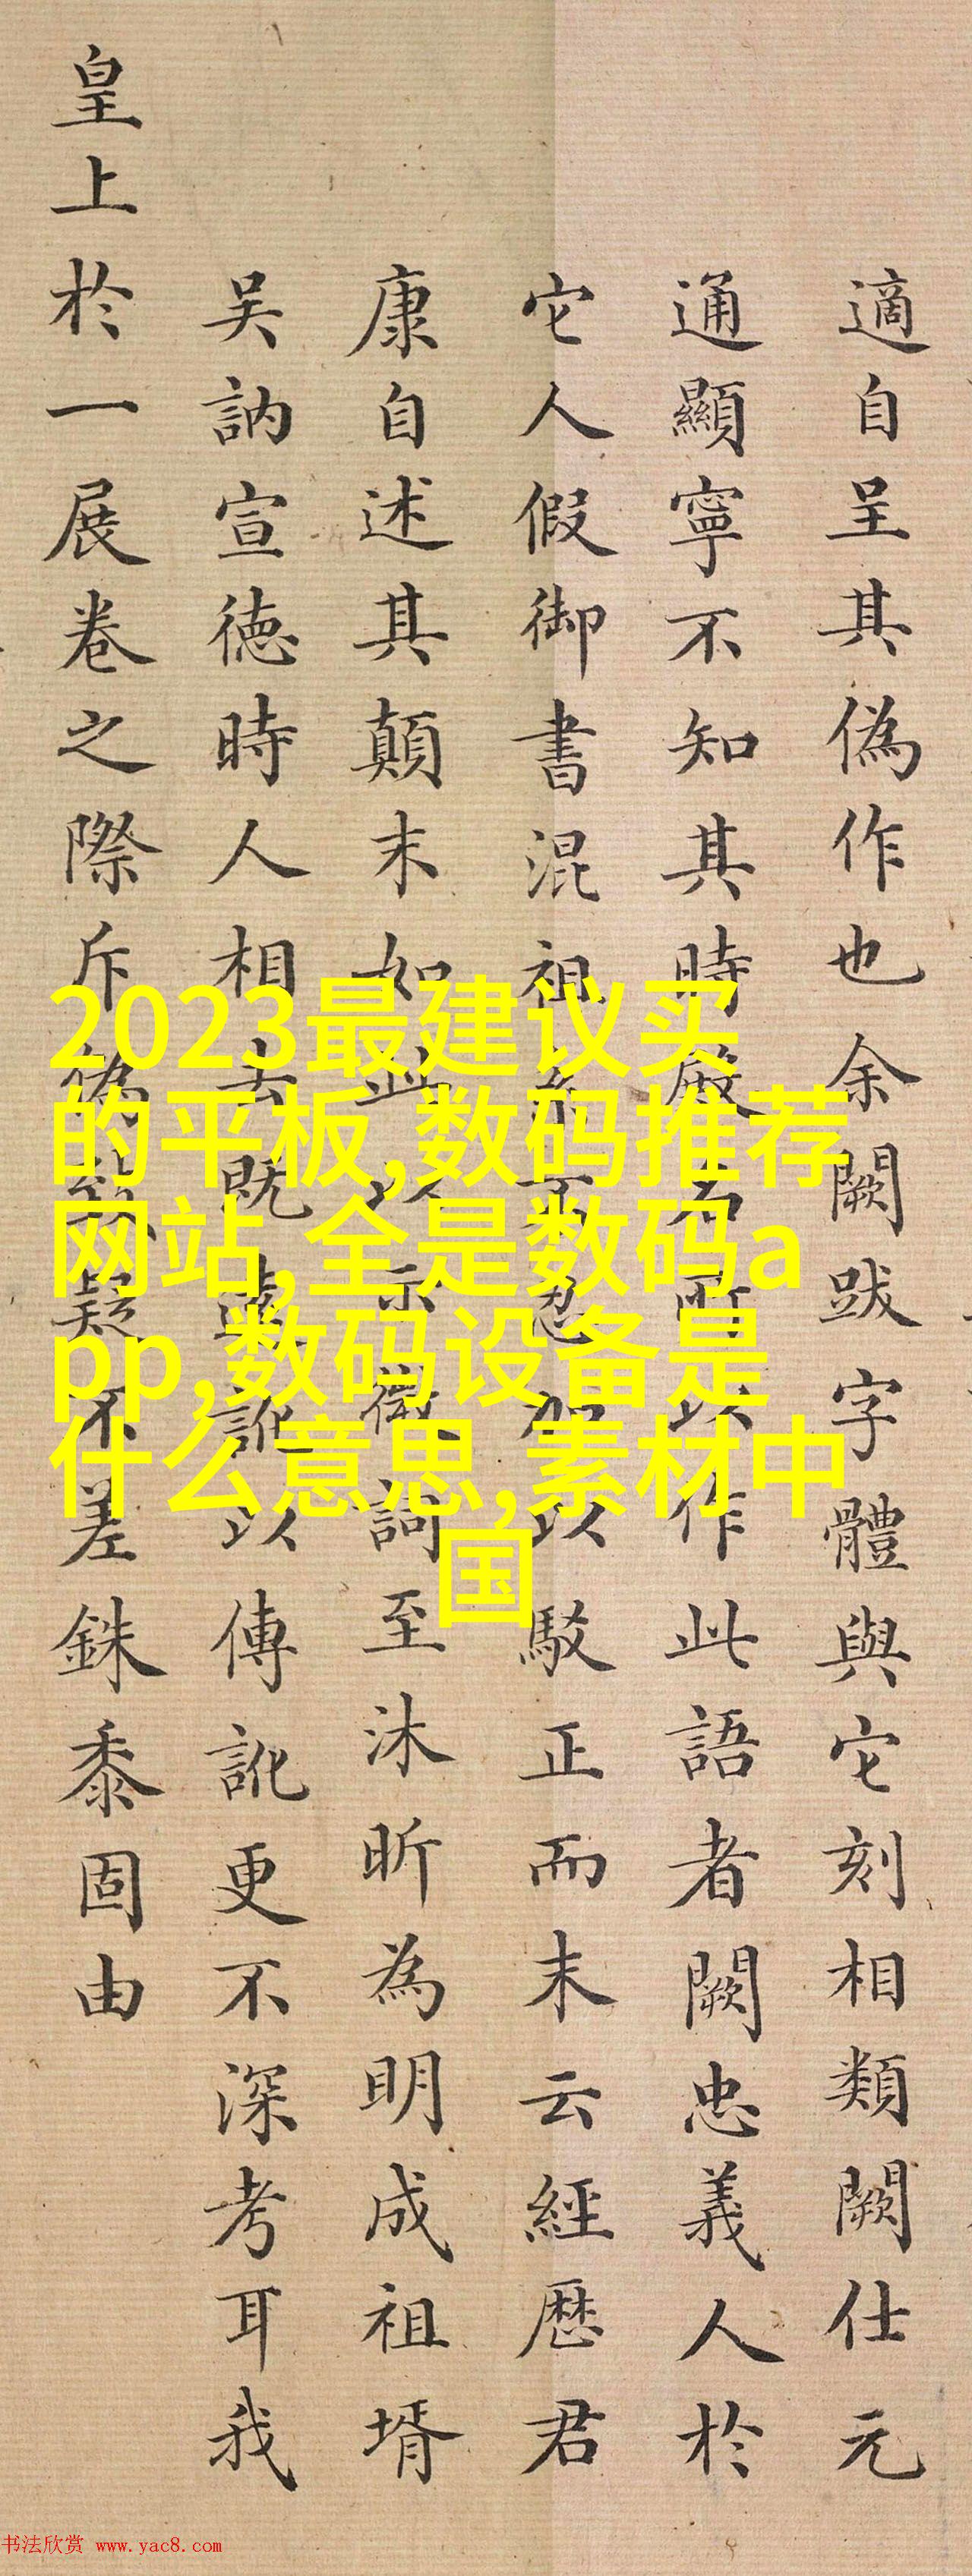 適自呈其偽作也余闕跋字體與它刻相類闕仕元
通顯寧不知其時殿所以作此語者闕忠義人於
它人假御書混祖系忽加以駁正而末云經歷君
康自述其顛末如此以示微詞至沐昕為明成祖壻
吳訥宣德時人相去既遠訛以傳訛更不深考耳我
皇上於一展卷之際斥偽疑不差銖黍固由
2023最建议买
的平板,数码推荐
网站,全是数码a
pp,数码设备是
什么意思,素材中
国
书法欣赏 www.yac8.com